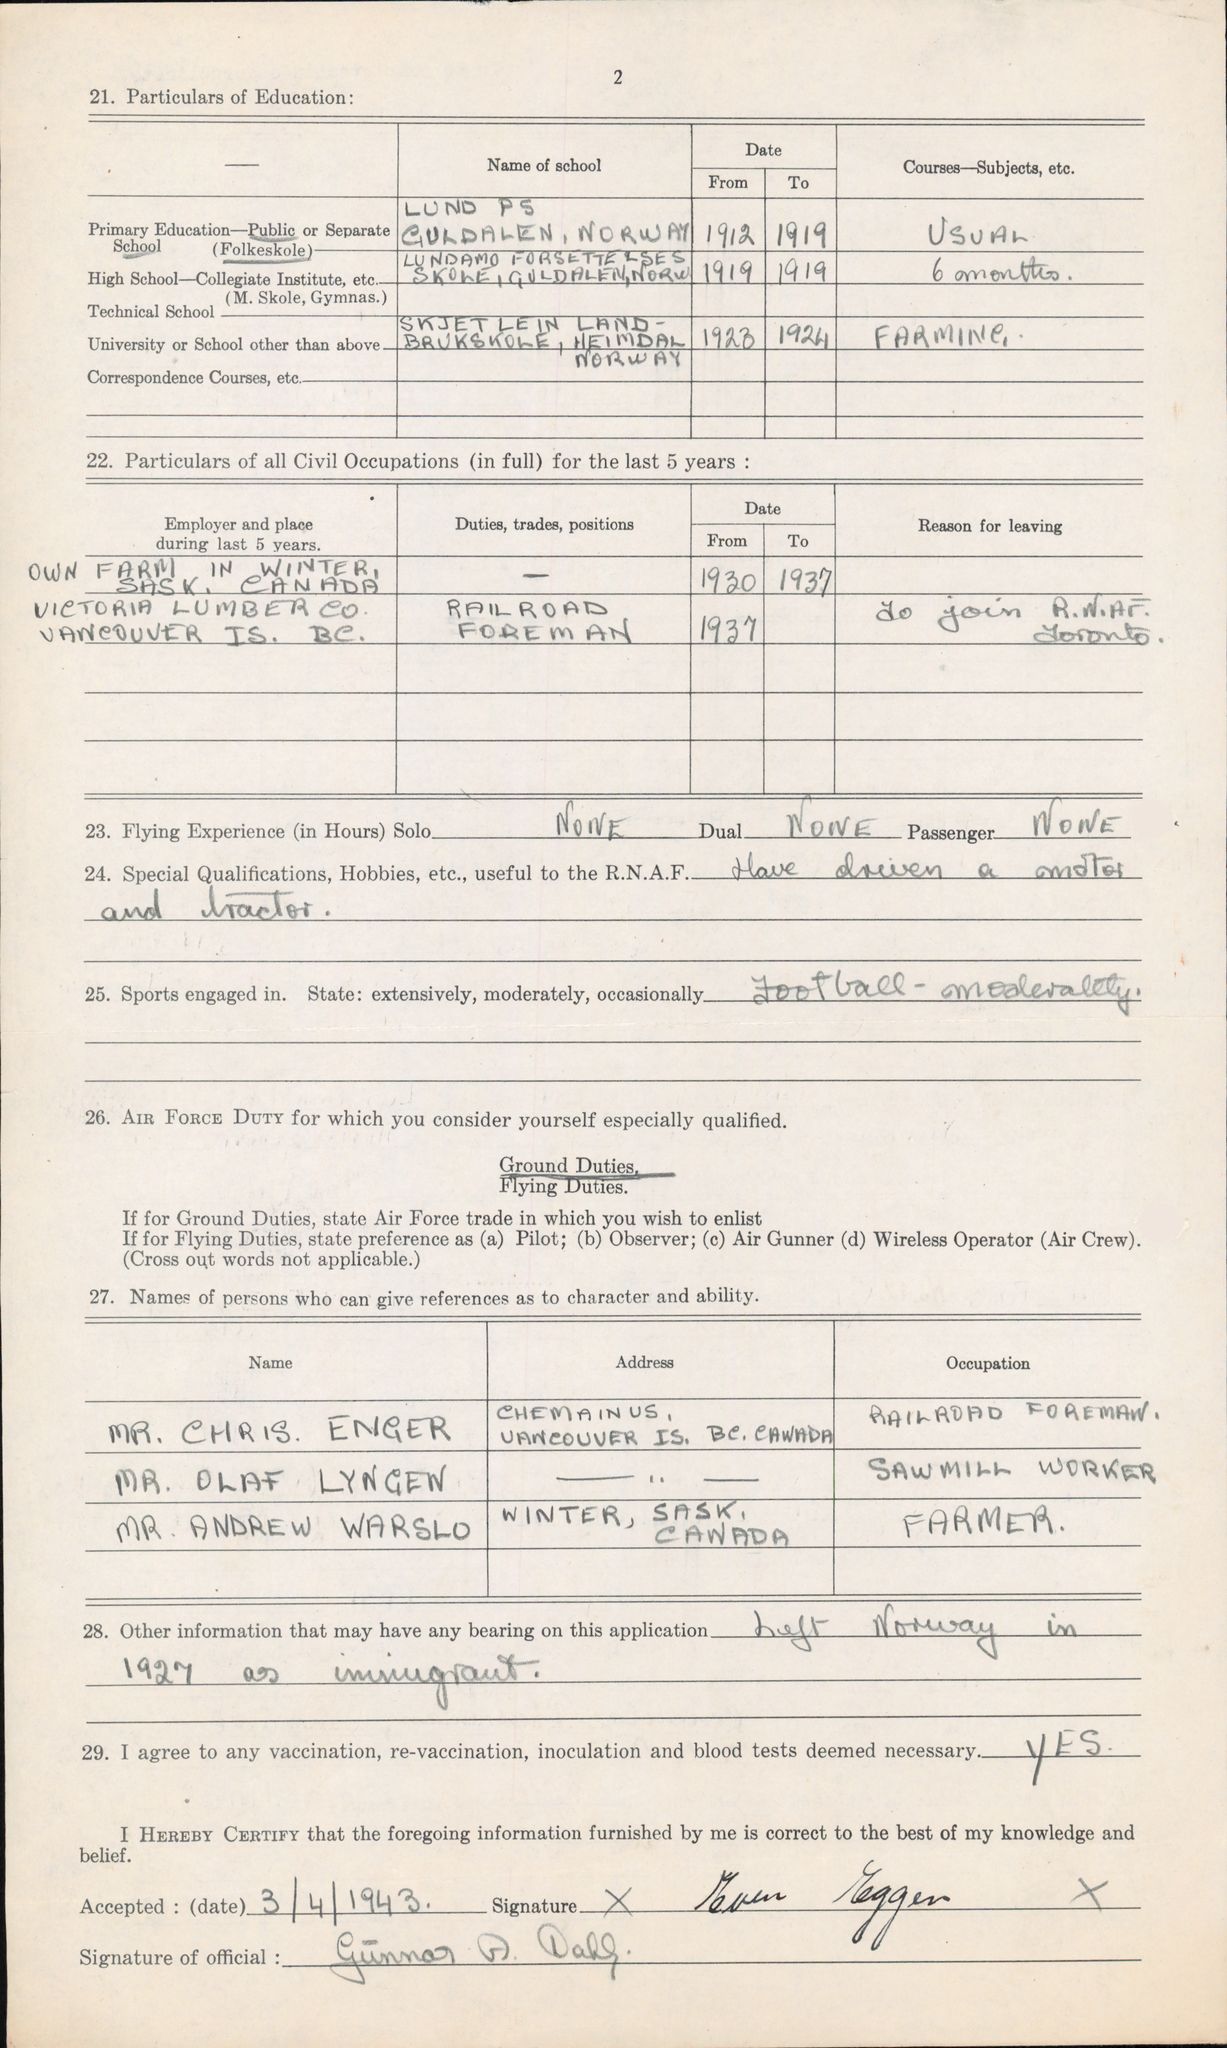 2
21. Particulars of Education:
—
Name of school
Date
From
To
Courses—Subjects, etc.
LUND PS
Primary Education—Public or Separate GULDALEN, NORWAY 1912 1919 USUAL
School (Folkeskole)
LUNDAMO FORSETTELSES
High School—Collegiate Institute, etc. SKOLE, GULDALEN, NORW 1919 1919 6 months.
(M. Skole, Gymnas.)
Technical School
SKJETLEIN LAND-
University or School other than above BRUKSKOLE, HEIMDAL 1923 1924 FARMING.
NORWAY
Correspondence Courses, etc.
22. Particulars of all Civil Occupations (in full) for the last 5 years :
Employer and place
during last 5 years.
Duties, trades, positions
Date
From
To
Reason for leaving
OWN FARM IN WINTER,
SASK. CANADA — 1930 1937
VICTORIA LUMBER CO. RAILROAD To join R.N.AF.
VANCOUVER IS. BC. FOREMAN 1937 Toronto.
23. Flying Experience (in Hours) Solo NONE Dual NONE Passenger NONE
24. Special Qualifications, Hobbies, etc., useful to the R.N.A.F. Have driven a motor
and tractor.
25. Sports engaged in. State: extensively, moderately, occasionally Football - moderaltly.
26. AIR FORCE DUTY for which you consider yourself especially qualified.
Ground Duties.
Flying Duties.
If for Ground Duties, state Air Force trade in which you wish to enlist
If for Flying Duties, state preference as (a) Pilot; (b) Observer; (c) Air Gunner (d) Wireless Operator (Air Crew).
(Cross out words not applicable.)
27. Names of persons who can give references as to character and ability.
Name Address Occupation
CHEMAINUS, RAILROAD FOREMAN.
MR. CHRIS. ENGER VANCOUVER IS. BC. CANADA
MR. OLAF LYNGEN — " — SAWMILL WORKER
MR. ANDREW WARSLO WINTER, SASK. FARMER.
CANADA
28. Other information that may have any bearing on this application Left Norway in
1927 as immigrant.
29. I agree to any vaccination, re-vaccination, inoculation and blood tests deemed necessary. YES.
I HEREBY CERTIFY that the foregoing information furnished by me is correct to the best of my knowledge and
belief.
Accepted : (date) 3/4/1943. Signature X Even Eggen X
Signature of official : Gunnar A. Dahl.